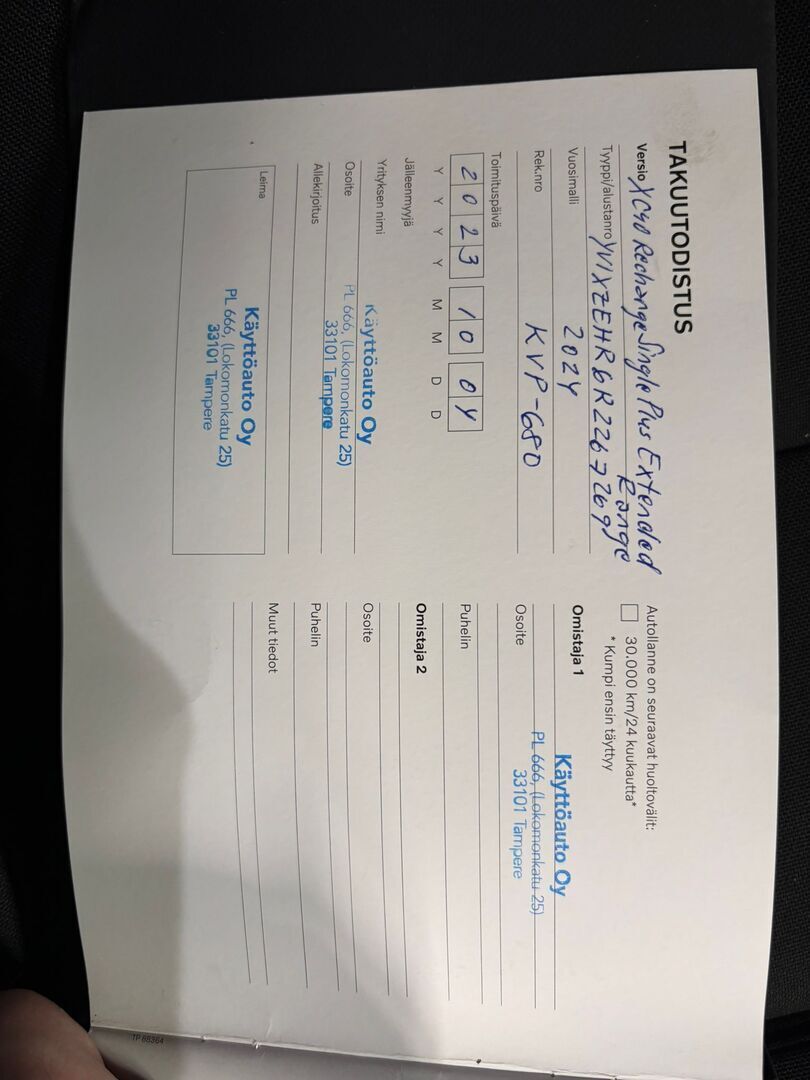 TAKUUTODISTUS
Versio XC40 Recharge Single Plus Extended
Range
Tyyppi/alustanro YV1XZEHR6R2267269
Vuosimalli 2024
Rek.nro KVP-680
Toimituspäivä
2023 10 04
Y Y Y Y M M D D
Jälleenmyyjä
Yrityksen nimi Käyttöauto Oy
Osoite PL 666, (Lokomonkatu 25)
33101 Tampere
Allekirjoitus
Leima
Käyttöauto Oy
PL 666, (Lokomonkatu 25)
33101 Tampere
Autollanne on seuraavat huoltovälit:
30.000 km/24 kuukautta*
* Kumpi ensin täyttyy
Omistaja 1
Käyttöauto Oy
Osoite PL 666, (Lokomonkatu 25)
33101 Tampere
Puhelin
Omistaja 2
Osoite
Puhelin
Muut tiedot
TP 68364